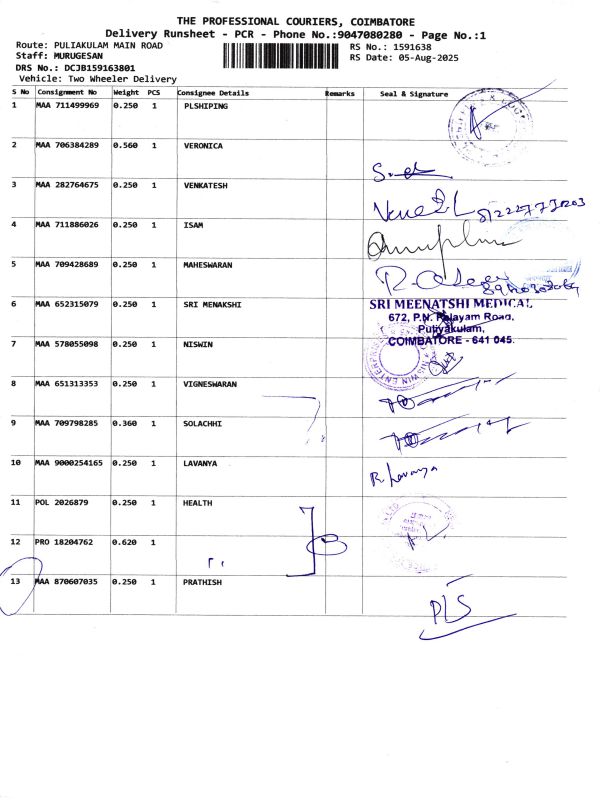 THE PROFESSIONAL COURIERS, COIMBATORE
Delivery Runsheet - PCR - Phone No.:9047080280 - Page No.:1
Route: PULIAKULAM MAIN ROAD
RS No.: 1591638
Staff: MURUGESAN
RS Date: 05-Aug-2025
DRS No.: DCJB159163801
Vehicle: Two Wheeler Delivery
S No Consignment No Weight PCS Consignee Details Remarks Seal & Signature
1 MAA 711499969 0.250 1 PLSHIPING
2 MAA 706384289 0.560 1 VERONICA
3 MAA 282764675 0.250 1 VENKATESH
4 MAA 711886026 0.250 1 ISAM
5 MAA 709428689 0.250 1 MAHESWARAN
6 MAA 652315079 0.250 1 SRI MENAKSHI
SRI MEENATSHI MEDICAL
672, P.N. Palayam Road,
Puliyakulam,
COIMBATORE - 641 045.
7 MAA 578055098 0.250 1 NISWIN
8 MAA 651313353 0.250 1 VIGNESWARAN
9 MAA 709798285 0.360 1 SOLACHHI
10 MAA 9000254165 0.250 1 LAVANYA
R. Lavanya
11 POL 2026879 0.250 1 HEALTH
12 PRO 18204762 0.620 1
13 MAA 870607035 0.250 1 PRATHISH
PLS